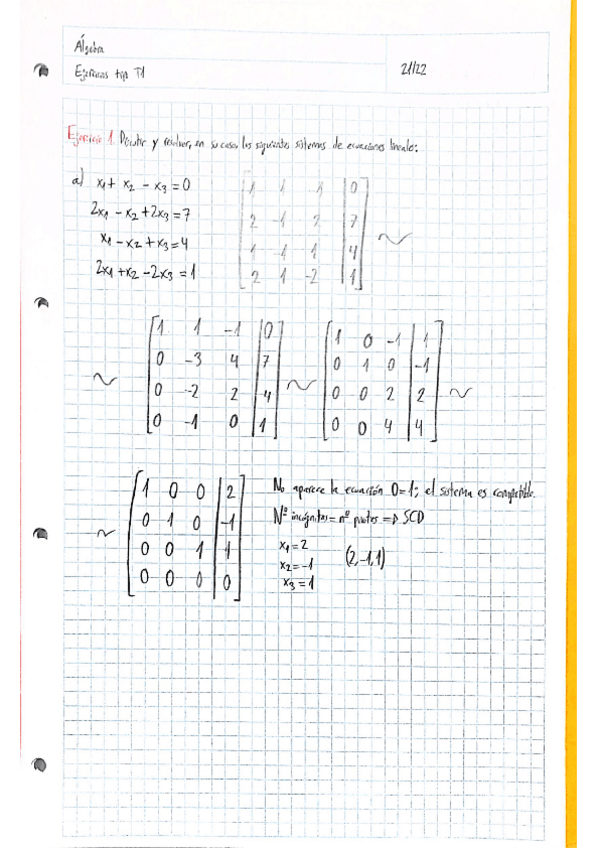 Álgebra
Ejercicios tipo T1
21/22
Ejercicio 1. Discutir y resolver, en su caso, los siguientes sistemas de ecuaciones lineales:
a) x₁ + x₂ - x₃ = 0
2x₁ - x₂ + 2x₃ = 7
x₁ - x₂ + x₃ = 4
2x₁ + x₂ - 2x₃ = 1
1 1 1 | 0
2 -1 2 | 7
1 -1 1 | 4
2 1 -2 | 1
~
~
1 1 -1 | 0
0 -3 4 | 7
0 -2 2 | 4
0 -1 0 | 1
~
1 0 -1 | 1
0 1 0 | -1
0 0 2 | 2
0 0 4 | 4
~
~
1 0 0 | 2
0 1 0 | -1
0 0 1 | 1
0 0 0 | 0
No aparece la ecuación 0=1; el sistema es compatible.
Nº incógnitas = nº pivotes => SCD
x₁ = 2
x₂ = -1
x₃ = 1
(2, -1, 1)